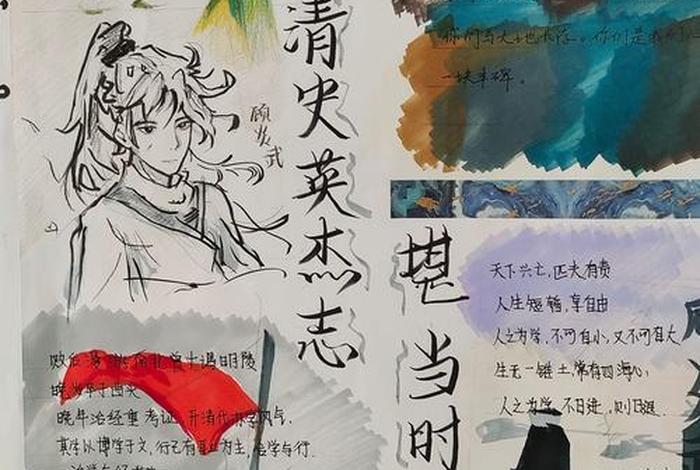 清史英杰志
顾炎武
你们与天地长存。你们是我们心
一块丰碑。
堪当时
天下兴亡,匹夫有责
人生短暂,享自由
人之为学,不可自小,又不可自大
生无一锥土,常有四海心,
人之为学 不日进,则日退.
败后 曾十谒明陵
晚岁卒于曲沃
晚年治经重考证,开清代朴学风气.
其学以博学于文,行己有耻 为主,合学与行.